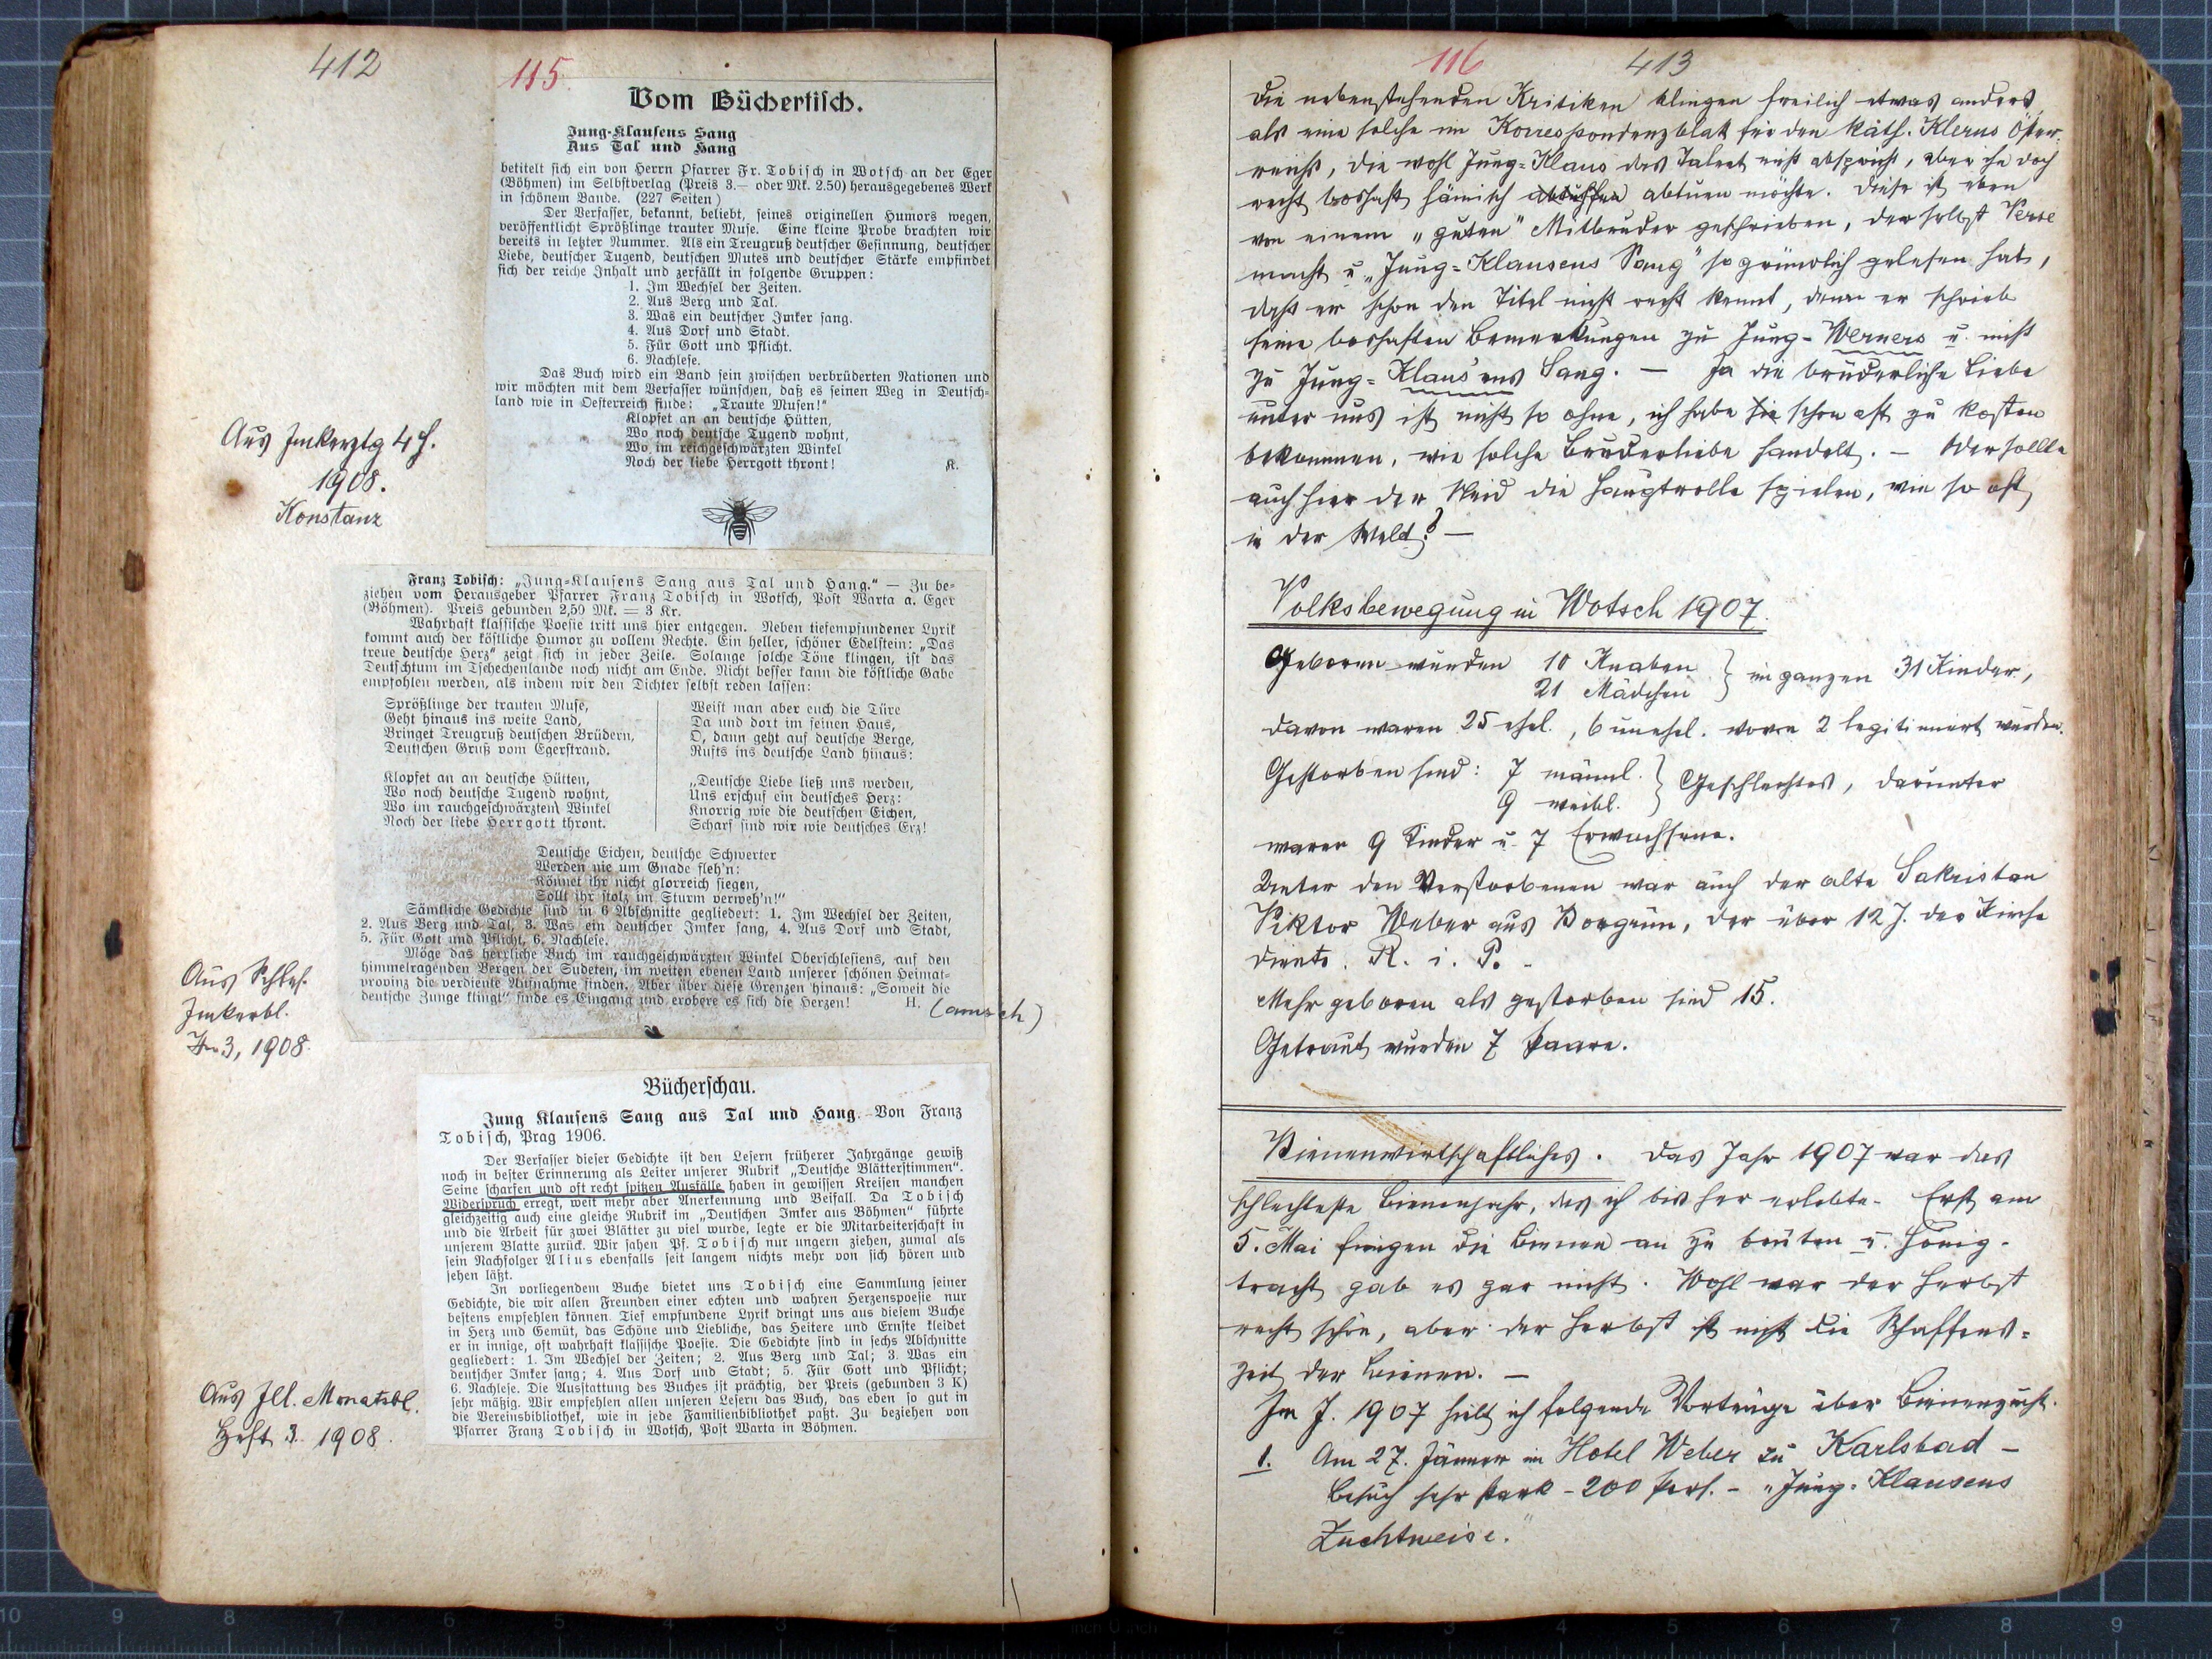 412
115
Vom Büchertisch.
Jung-Klausens Sang
Aus Tal und Hang
betitelt sich ein von Herrn Pfarrer Fr. Tobisch in Wotsch an der Eger
(Böhmen) im Selbstverlag (Preis 3.— oder Mk. 2.50) herausgegebenes Werk
in schönem Bande. (227 Seiten)
Der Verfasser, bekannt, beliebt, seines originellen Humors wegen,
veröffentlicht Sprößlinge trauter Muse. Eine kleine Probe brachten wir
bereits in letzter Nummer. Als ein Treugruß deutscher Gesinnung, deutscher
Liebe, deutscher Tugend, deutschen Mutes und deutscher Stärke empfindet
sich der reiche Inhalt und zerfällt in folgende Gruppen:
1. Im Wechsel der Zeiten.
2. Aus Berg und Tal.
3. Was ein deutscher Imker sang.
4. Aus Dorf und Stadt.
5. Für Gott und Pflicht.
6. Nachlese.
Das Buch wird ein Band sein zwischen verbrüderten Nationen und
wir möchten mit dem Verfasser wünschen, daß es seinen Weg in Deutsch-
land wie in Oesterreich finde: „Traute Musen!"
Klopfet an an deutsche Hütten,
Wo noch deutsche Tugend wohnt,
Wo im reichgeschwärzten Winkel
Noch der liebe Herrgott thront!
K.
Aus Imkerztg 4 H.
1908.
Konstanz
Franz Tobisch: „Jung-Klausens Sang aus Tal und Hang." — Zu be-
ziehen vom Herausgeber Pfarrer Franz Tobisch in Wotsch, Post Warta a. Eger
(Böhmen). Preis gebunden 2,50 Mk. = 3 Kr.
Wahrhaft klassische Poesie tritt uns hier entgegen. Neben tiefempfundener Lyrik
kommt auch der köstliche Humor zu vollem Rechte. Ein heller, schöner Edelstein: „Das
treue deutsche Herz" zeigt sich in jeder Zeile. Solange solche Töne klingen, ist das
Deutschtum im Tschechenlande noch nicht am Ende. Nicht besser kann die köstliche Gabe
empfohlen werden, als indem wir den Dichter selbst reden lassen:
Sprößlinge der trauten Muse,
Geht hinaus ins weite Land,
Bringet Treugruß deutschen Brüdern,
Deutschen Gruß vom Egerstrand.
Klopfet an an deutsche Hütten,
Wo noch deutsche Tugend wohnt,
Wo im rauchgeschwärzten Winkel
Noch der liebe Herrgott thront.
Weist man aber euch die Türe
Da und dort im feinen Haus,
O, dann geht auf deutsche Berge,
Rufts ins deutsche Land hinaus:
„Deutsche Liebe ließ uns werden,
Uns erschuf ein deutsches Herz:
Knorrig wie die deutschen Eichen,
Scharf sind wir wie deutsches Erz!
Deutsche Eichen, deutsche Schwerter
Werden nie um Gnade fleh'n:
Könnet ihr nicht glorreich siegen,
Sollt ihr stolz im Sturm verweh'n!"
Sämtliche Gedichte sind in 6 Abschnitte gegliedert: 1. Im Wechsel der Zeiten,
2. Aus Berg und Tal, 3. Was ein deutscher Imker sang, 4. Aus Dorf und Stadt,
5. Für Gott und Pflicht, 6. Nachlese.
Möge das herrliche Buch im rauchgeschwärzten Winkel Oberschlesiens, auf den
himmelragenden Bergen der Sudeten, im weiten ebenen Land unserer schönen Heimat-
provinz die verdiente Aufnahme finden. Aber über diese Grenzen hinaus: „Soweit die
deutsche Zunge klingt" finde es Eingang und erobere es sich die Herzen! H. (amsch)
Aus Schles.
Imkerbl.
Nr 3, 1908.
Bücherschau.
Jung Klausens Sang aus Tal und Hang. Von Franz
Tobisch, Prag 1906.
Der Verfasser dieser Gedichte ist den Lesern früherer Jahrgänge gewiß
noch in bester Erinnerung als Leiter unserer Rubrik „Deutsche Blätterstimmen".
Seine scharfen und oft recht spitzen Ausfälle haben in gewissen Kreisen manchen
Widerspruch erregt, weit mehr aber Anerkennung und Beifall. Da Tobisch
gleichzeitig auch eine gleiche Rubrik im „Deutschen Imker aus Böhmen" führte
und die Arbeit für zwei Blätter zu viel wurde, legte er die Mitarbeiterschaft in
unserem Blatte zurück. Wir sahen Pf. Tobisch nur ungern ziehen, zumal als
sein Nachfolger Alius ebenfalls seit langem nichts mehr von sich hören und
sehen läßt.
In vorliegendem Buche bietet uns Tobisch eine Sammlung seiner
Gedichte, die wir allen Freunden einer echten und wahren Herzenspoesie nur
bestens empfehlen können. Tief empfundene Lyrik dringt uns aus diesem Buche
in Herz und Gemüt, das Schöne und Liebliche, das Heitere und Ernste kleidet
er in innige, oft wahrhaft klassische Poesie. Die Gedichte sind in sechs Abschnitte
gegliedert: 1. Im Wechsel der Zeiten; 2. Aus Berg und Tal; 3. Was ein
deutscher Imker sang; 4. Aus Dorf und Stadt; 5. Für Gott und Pflicht;
6. Nachlese. Die Ausstattung des Buches ist prächtig, der Preis (gebunden 3 K)
sehr mäßig. Wir empfehlen allen unseren Lesern das Buch, das eben so gut in
die Vereinsbibliothek, wie in jede Familienbibliothek paßt. Zu beziehen von
Pfarrer Franz Tobisch in Wotsch, Post Warta in Böhmen.
Aus Ill. Monatsbl.
Heft 3. 1908.
116
413
Die nebenstehenden Kritiken klingen freilich etwas anders
als eine solche im Korrespondenzblatt für den kath. Klerus Öster-
reichs, die wohl Jung-Klaus das Talent nicht abspricht, aber ihn doch
recht boshaft hämisch abtuen möchte. Diese ist eben
von einem „guten" Mitbruder geschrieben, der selbst Verse
macht u. „Jung-Klausens Sang" so gründlich gelesen hat,
daß er schon den Titel nicht recht kennt, denn er schrieb
seine boshaften Bemerkungen zu Jung-Werners u. nicht
zu Jung-Klausens Sang. — Ja die brüderliche Liebe
unter uns ist nicht so ohne, ich habe sie schon oft zu kosten
bekommen, wie solche Bruderliebe handelt. — Oder sollte
auch hier der Neid die Hauptrolle spielen, wie so oft
in der Welt? —
Volksbewegung in Wotsch 1907.
Geboren wurden 10 Knaben
21 Mädchen } im ganzen 31 Kinder,
davon waren 25 ehel., 6 unehel. wovon 2 legitimiert wurden.
Gestorben sind: 7 männl.
9 weibl. } Geschlechtes, darunter
waren 9 Kinder u. 7 Erwachsene.
Unter den Verstorbenen war auch der alte Sakristan
Viktor Weber aus Dorgrün, der über 12 J. der Kirche
diente. R. i. P. -
Mehr geboren als gestorben sind 15.
Getraut wurden 7 Paare.
Bienenwirtschaftliches. Das Jahr 1907 war das
schlechteste Bienenjahr, das ich bisher erlebte. Erst am
5. Mai fingen die Bienen an zu brüten u. Honig-
tracht gab es gar nicht. Wohl war der Herbst
recht schön, aber der Herbst ist nicht die Schaffens-
zeit der Bienen. —
Im J. 1907 hielt ich folgende Vorträge über Bienenzucht.
1. Am 27. Jänner im Hotel Weber zu Karlsbad —
Besuch sehr stark - 200 Pers. - „Jung-Klausens
Zuchtweise."